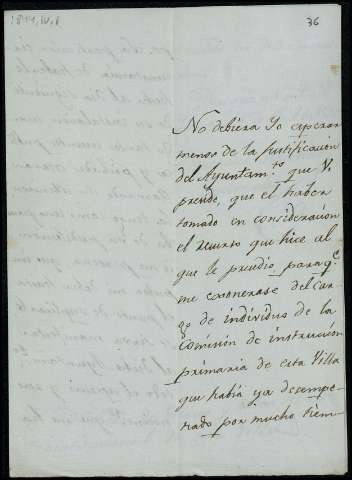 1844, IV, 1
36
No debiera Yo esperar
menos de la justificacion
del Ayuntam.to que V.
preside, que el haber
tomado en consideracion
el recurso que hice al
que le precedio para q.e
me exonerase del car-
go de individuo de la
Comision de instruccion
primaria de esta Villa
que habia ya desempe-
ñado por mucho tiem-